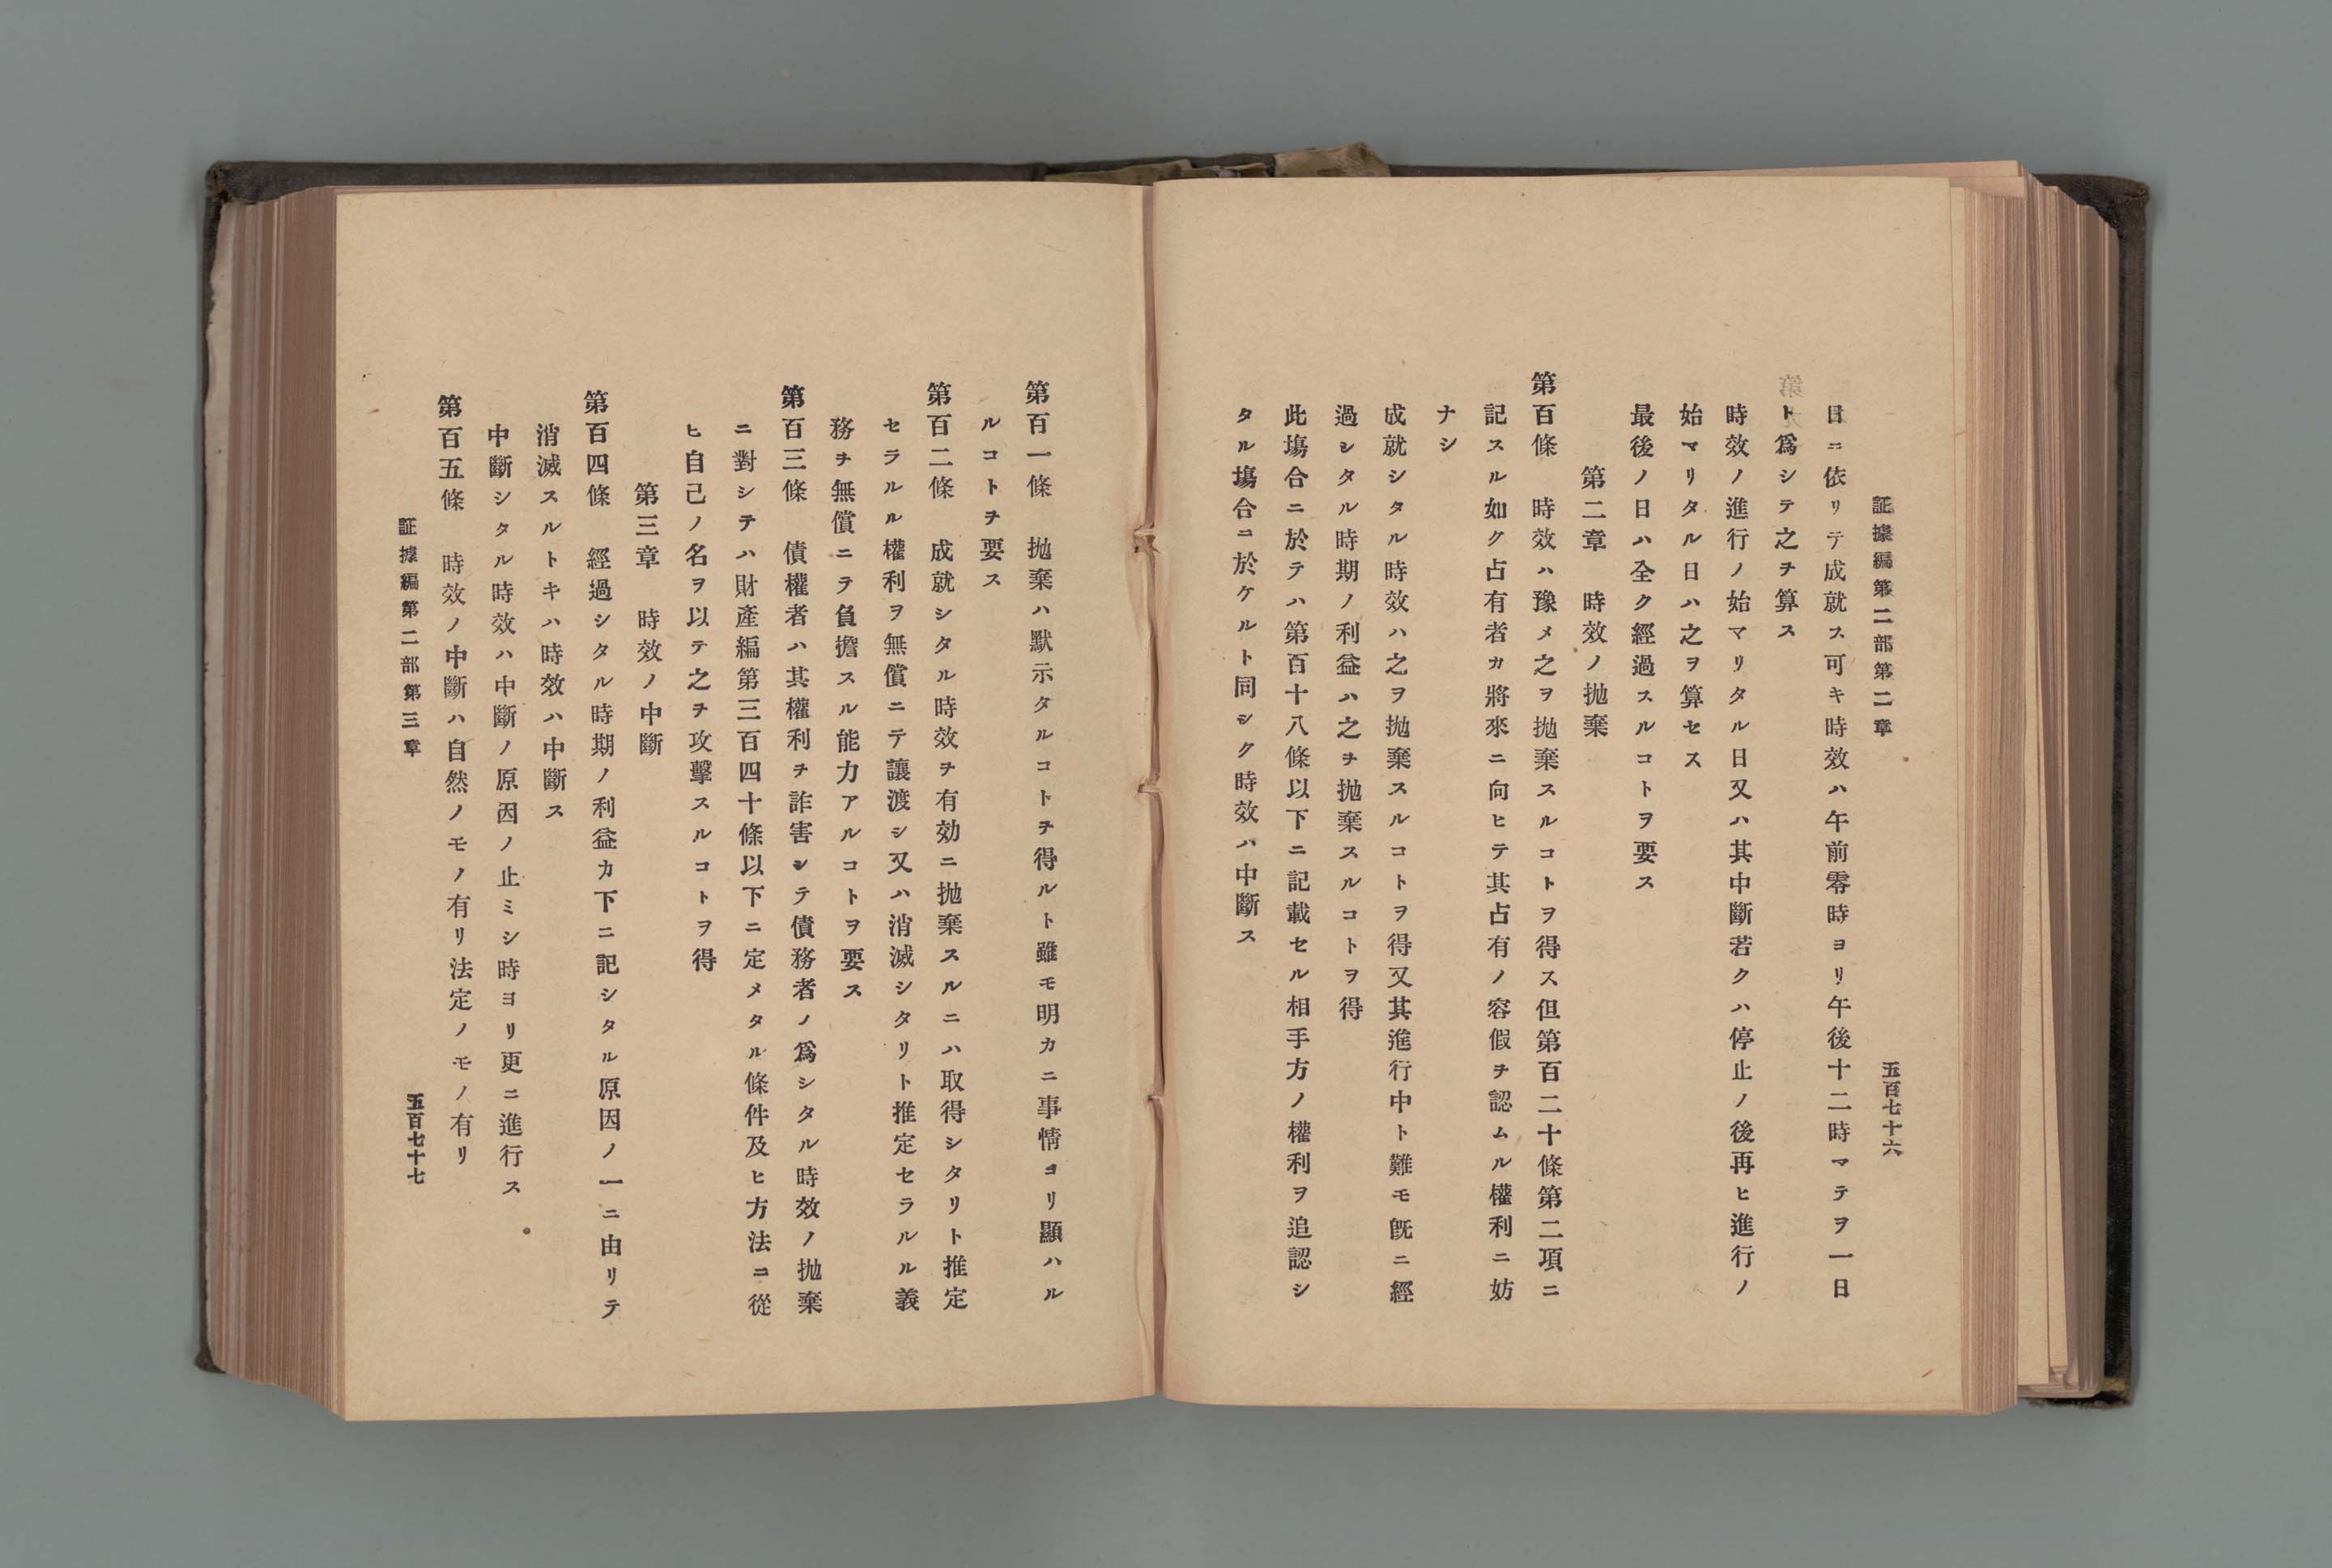 証據編第二部第二章
五百七十六
日ニ依リテ成就ス可キ時效ハ午前零時ヨリ午後十二時マテヲ一日
ト爲シテ之ヲ算ス
時效ノ進行ノ始マリタル日又ハ其中斷若クハ停止ノ後再ヒ進行ノ
始マリタル日ハ之ヲ算セス
最後ノ日ハ全ク經過スルコトヲ要ス
第二章 時效ノ抛棄
第百條 時效ハ豫メ之ヲ抛棄スルコトヲ得ス但第百二十條第二項ニ
記スル如ク占有者カ將來ニ向ヒテ其占有ノ容假ヲ認ムル權利ニ妨
ナシ
成就シタル時效ハ之ヲ抛棄スルコトヲ得又其進行中ト難モ既ニ經
過シタル時期ノ利益ハ之ヲ抛棄スルコトヲ得
此塲合ニ於テハ第百十八條以下ニ記載セル相手方ノ權利ヲ追認シ
タル塲合ニ於ケルト同シク時效ハ中斷ス
第百一條 抛棄ハ默示タルコトヲ得ルト雖モ明カニ事情ヨリ顯ハル
ルコトヲ要ス
第百二條 成就シタル時效ヲ有効ニ抛棄スルニハ取得シタリト推定
セラルル權利ヲ無償ニテ讓渡シ又ハ消滅シタリト推定セラルル義
務ヲ無償ニテ負擔スル能力アルコトヲ要ス
第百三條 債權者ハ其權利ヲ詐害シテ債務者ノ爲シタル時效ノ抛棄
ニ對シテハ財產編第三百四十條以下ニ定メタル條件及ヒ方法ニ從
ヒ自己ノ名ヲ以テ之ヲ攻擊スルコトヲ得
第三章 時效ノ中斷
第百四條 經過シタル時期ノ利益カ下ニ記シタル原因ノ一ニ由リテ
消滅スルトキハ時效ハ中斷ス
中斷シタル時效ハ中斷ノ原因ノ止ミシ時ヨリ更ニ進行ス
第百五條 時效ノ中斷ハ自然ノモノ有リ法定ノモノ有リ
証據編第二部第三章
五百七十七